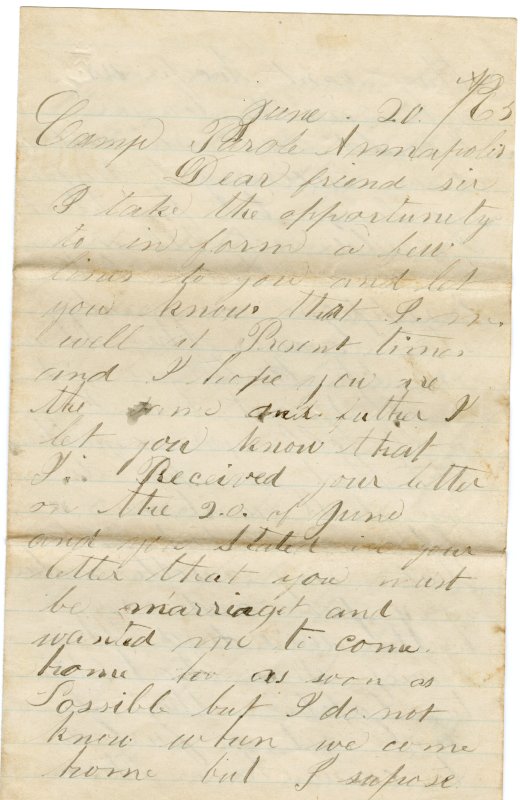 June . 20. /63
Camp Parole Annapolis
Dear friend sir
I take the opportunity
to in form a few
lines to you and let
you know that I. m.
well at Present times
and I hope you are
the same and futher I
let you know that
I. Received your letter
on the 20. of June
and you stated in your
letter that you must
be marriaget and
wanted me to come.
home too as soon as
Possible but I do not
know when we come
home but I supose